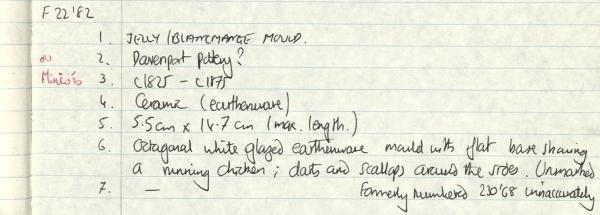 F 22'82
1. JELLY / BLANCMANGE MOULD.
2. Davenport pottery?
on
Minisis
3. c1825 - c1875
4. Ceramic (earthenware)
5. 5.5cm x 14.7 cm (max. length.)
6. Octagonal white glazed earthenware mould with flat base showing
a running chicken; dots and scallops around the sides. Unmarked
7. — Formerly numbered 230'68 inaccurately